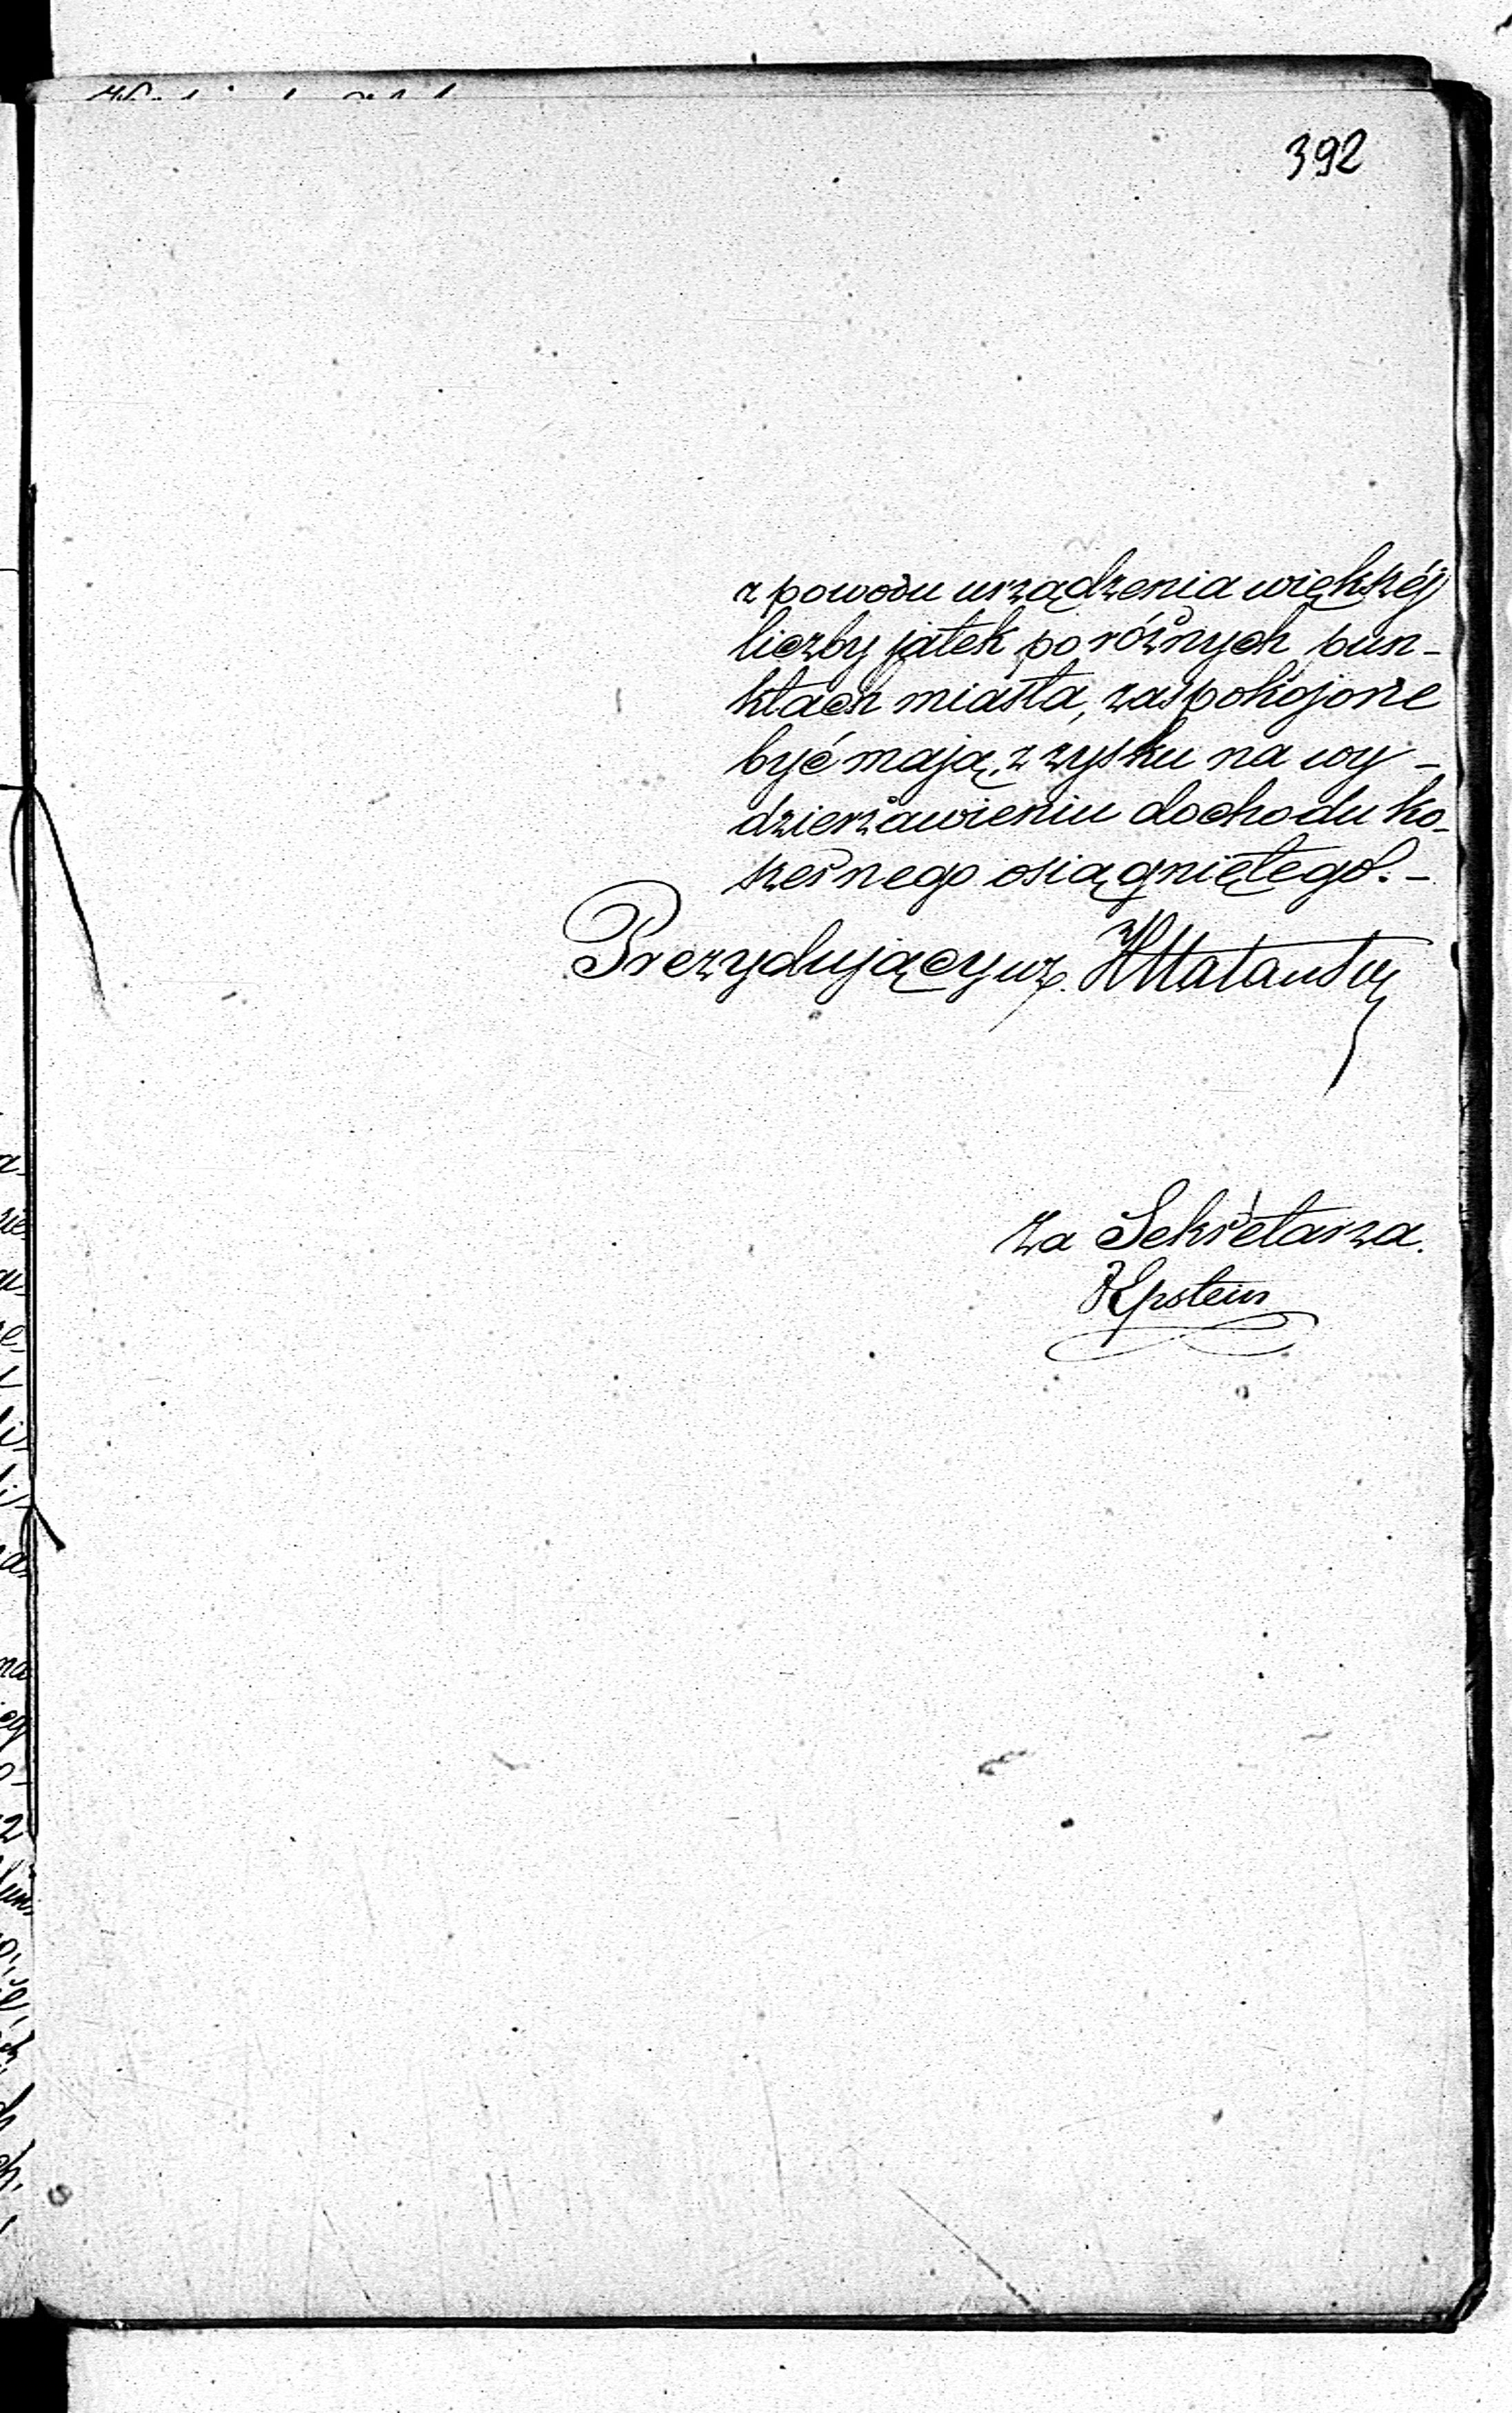 392
z powodu urządzenia większéj
liczby jatek po różnych pun-
ktach miasta, zaspokojone
być mają z zysku na wy-
dzierżawieniu dochodu ko-
szernego osiągniętego. -
Prezydujący wz.
Za Sekretarza.
Epstein